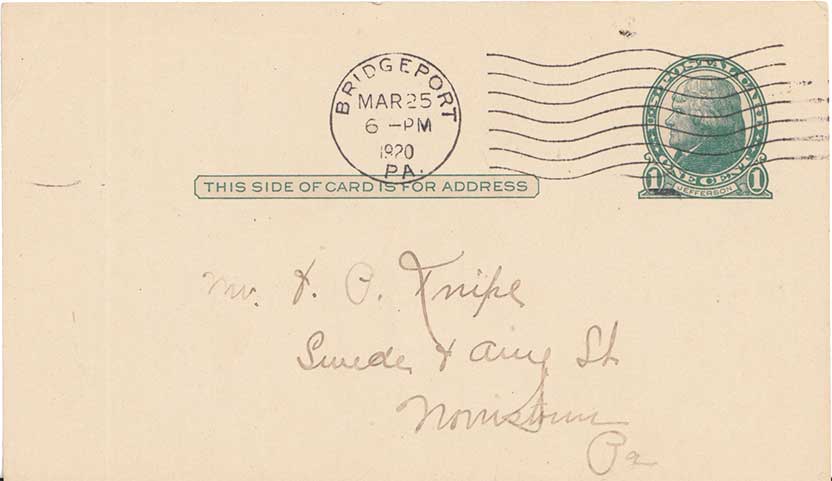 BRIDGEPORT
MAR 25
6 - PM
1920
PA.
U.S. POSTAL CARD
ONE CENT
1 JEFFERSON 1
THIS SIDE OF CARD IS FOR ADDRESS
Mr. P. Knipe
Swede & St
Norristown
Pa